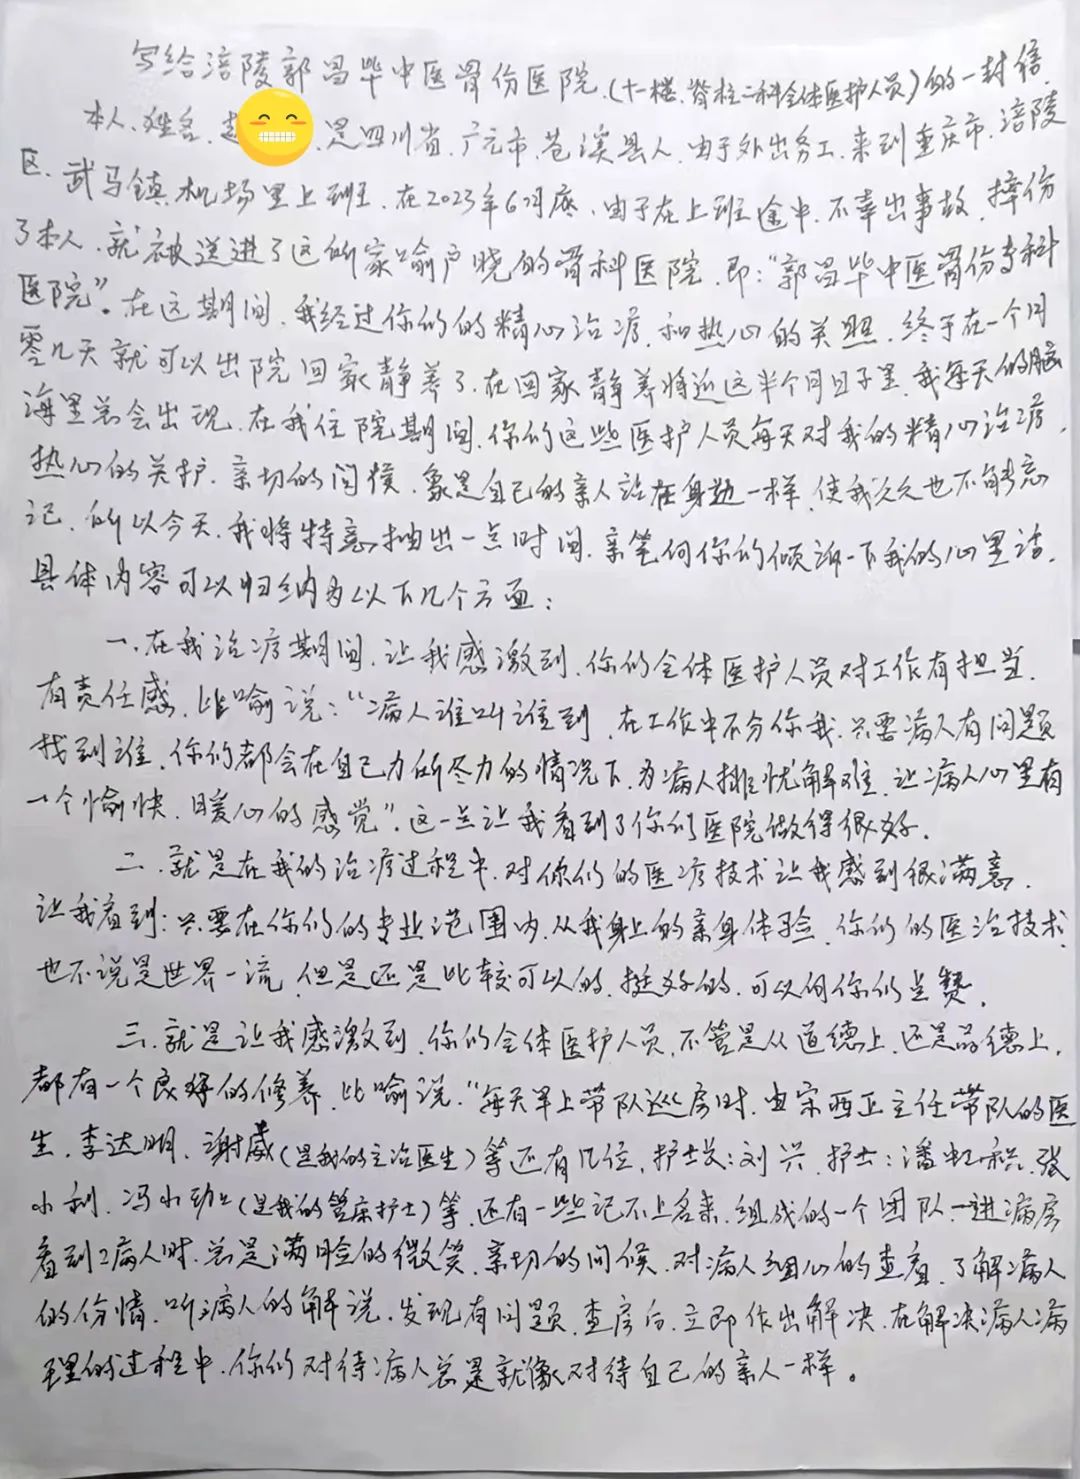 写给涪陵郭昌毕中医骨伤医院.(十一楼.脊柱二科全体医护人员)的一封信.
本人.姓名.赵 是四川省.广元市.苍溪县人.由于外出务工.来到重庆市.涪陵
区.武马镇.机场里上班.在2023年6月底.由于在上班途中.不幸出事故.摔伤
了本人.就被送进了这所家喻户晓的骨科医院.即:“郭昌毕中医骨伤专科
医院”。在这期间.我经过你们的精心治疗.和热心的关照.终于在一个月
零几天就可以出院回家静养了.在回家静养将近这半个月日子里.我每天的脑
海里总会出现.在我住院期间.你们这些医护人员每天对我的精心治疗,
热心的关护.亲切的问候.象是自己的亲人站在身边一样.使我久久也不能忘
记.所以今天.我将特意抽出一点时间.亲笔向你们倾诉一下我的心里话.
具体内容可以归纳为以下几个方面:
一.在我治疗期间.让我感激到.你们全体医护人员对工作有担当.
有责任感.比喻说:“病人谁叫谁到.在工作中不分你我.只要病人有问题
找到谁.你们都会在自己力所尽力的情况下.为病人排忧解难.让病人心里有
一个愉快.暖心的感觉”.这一点让我看到了你们医院做得很好.
二.就是在我的治疗过程中.对你们的医疗技术让我感到很满意.
让我看到:只要在你们的专业范围内.从我身上的亲身体验.你们的医治技术.
也不说是世界一流.但是还是比较可以的.挺好的.可以向你们点赞.
三.就是让我感激到.你们全体医护人员.不管是从道德上.还是品德上.
都有一个良好的修养.比喻说.“每天早上带队巡房时.由宋西正主任带队的医
生.李达明.谢威(是我的主治医生)等还有几位.护士长:刘兴.护士:潘虹积.张
小利.冯小劲(是我的管床护士)等.还有一些记不上名来.组成的一个团队.一进病房
看到病人时.总是满脸的微笑.亲切的问候.对病人细心的查看.了解病人
的伤情.听病人的解说.发现有问题.查房后.立即作出解决.在解决病人病
理的过程中.你们对待病人总是就像对待自己的亲人一样。